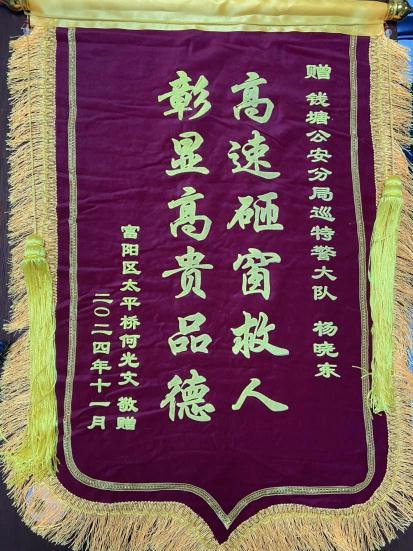 赠 钱塘公安分局巡特警大队 杨晓东
高速砸窗救人
彰显高贵品德
富阳区太平桥何光文 敬赠
二〇二四年十一月